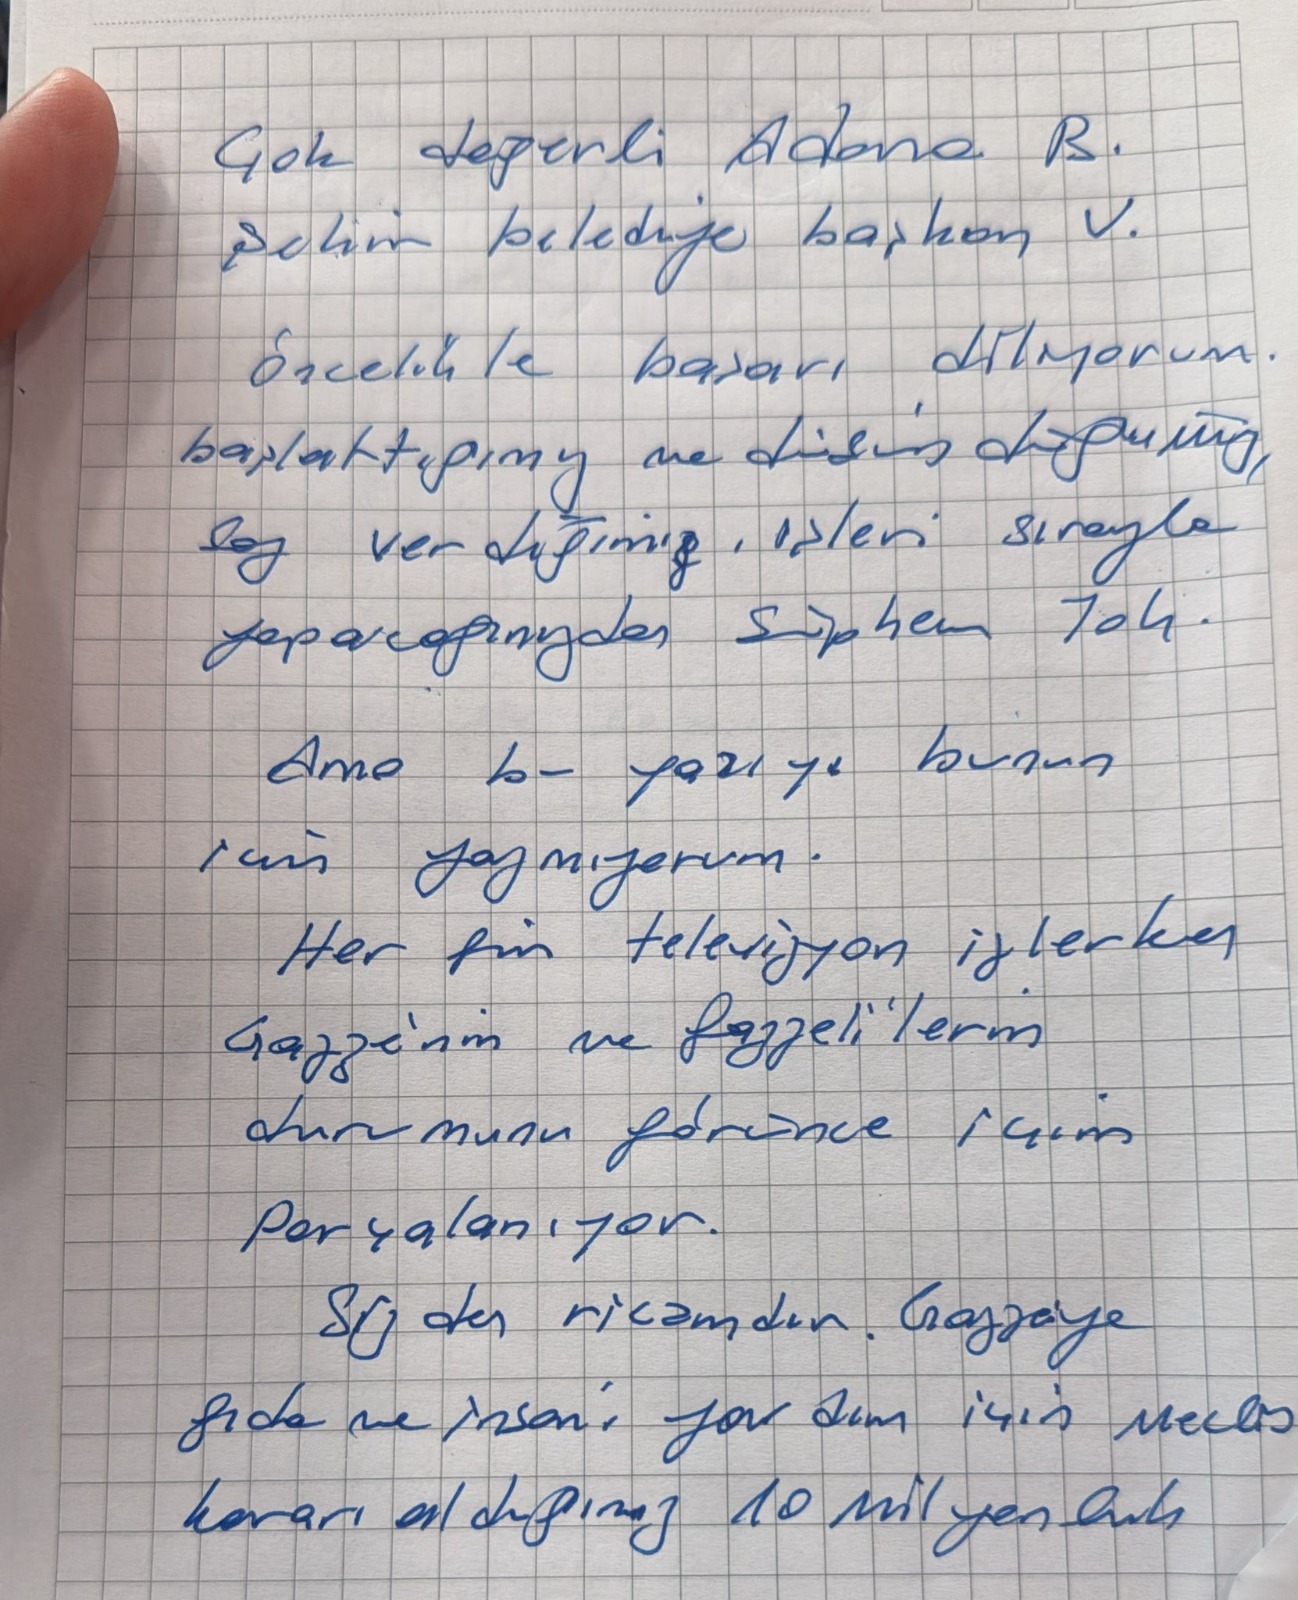 Çok değerli Adana B.
Şehir belediye başkan V.
Öncelikle başarı diliyorum.
başlattığınız ve düşündüğünüz,
Söz verdiğiniz işleri sırayla
yapacağınızdan Şüphem Yok.
Ama bu yazıyı bunun
için yazmıyorum.
Her gün televizyon izlerken
Gazze'nin ve gazzeli'lerin
durumunu görünce içim
Parçalanıyor.
Sizden ricamdır. Gazze'ye
gıda ve insani yardım için Meclis
kararı aldığınız 10 Milyonluk